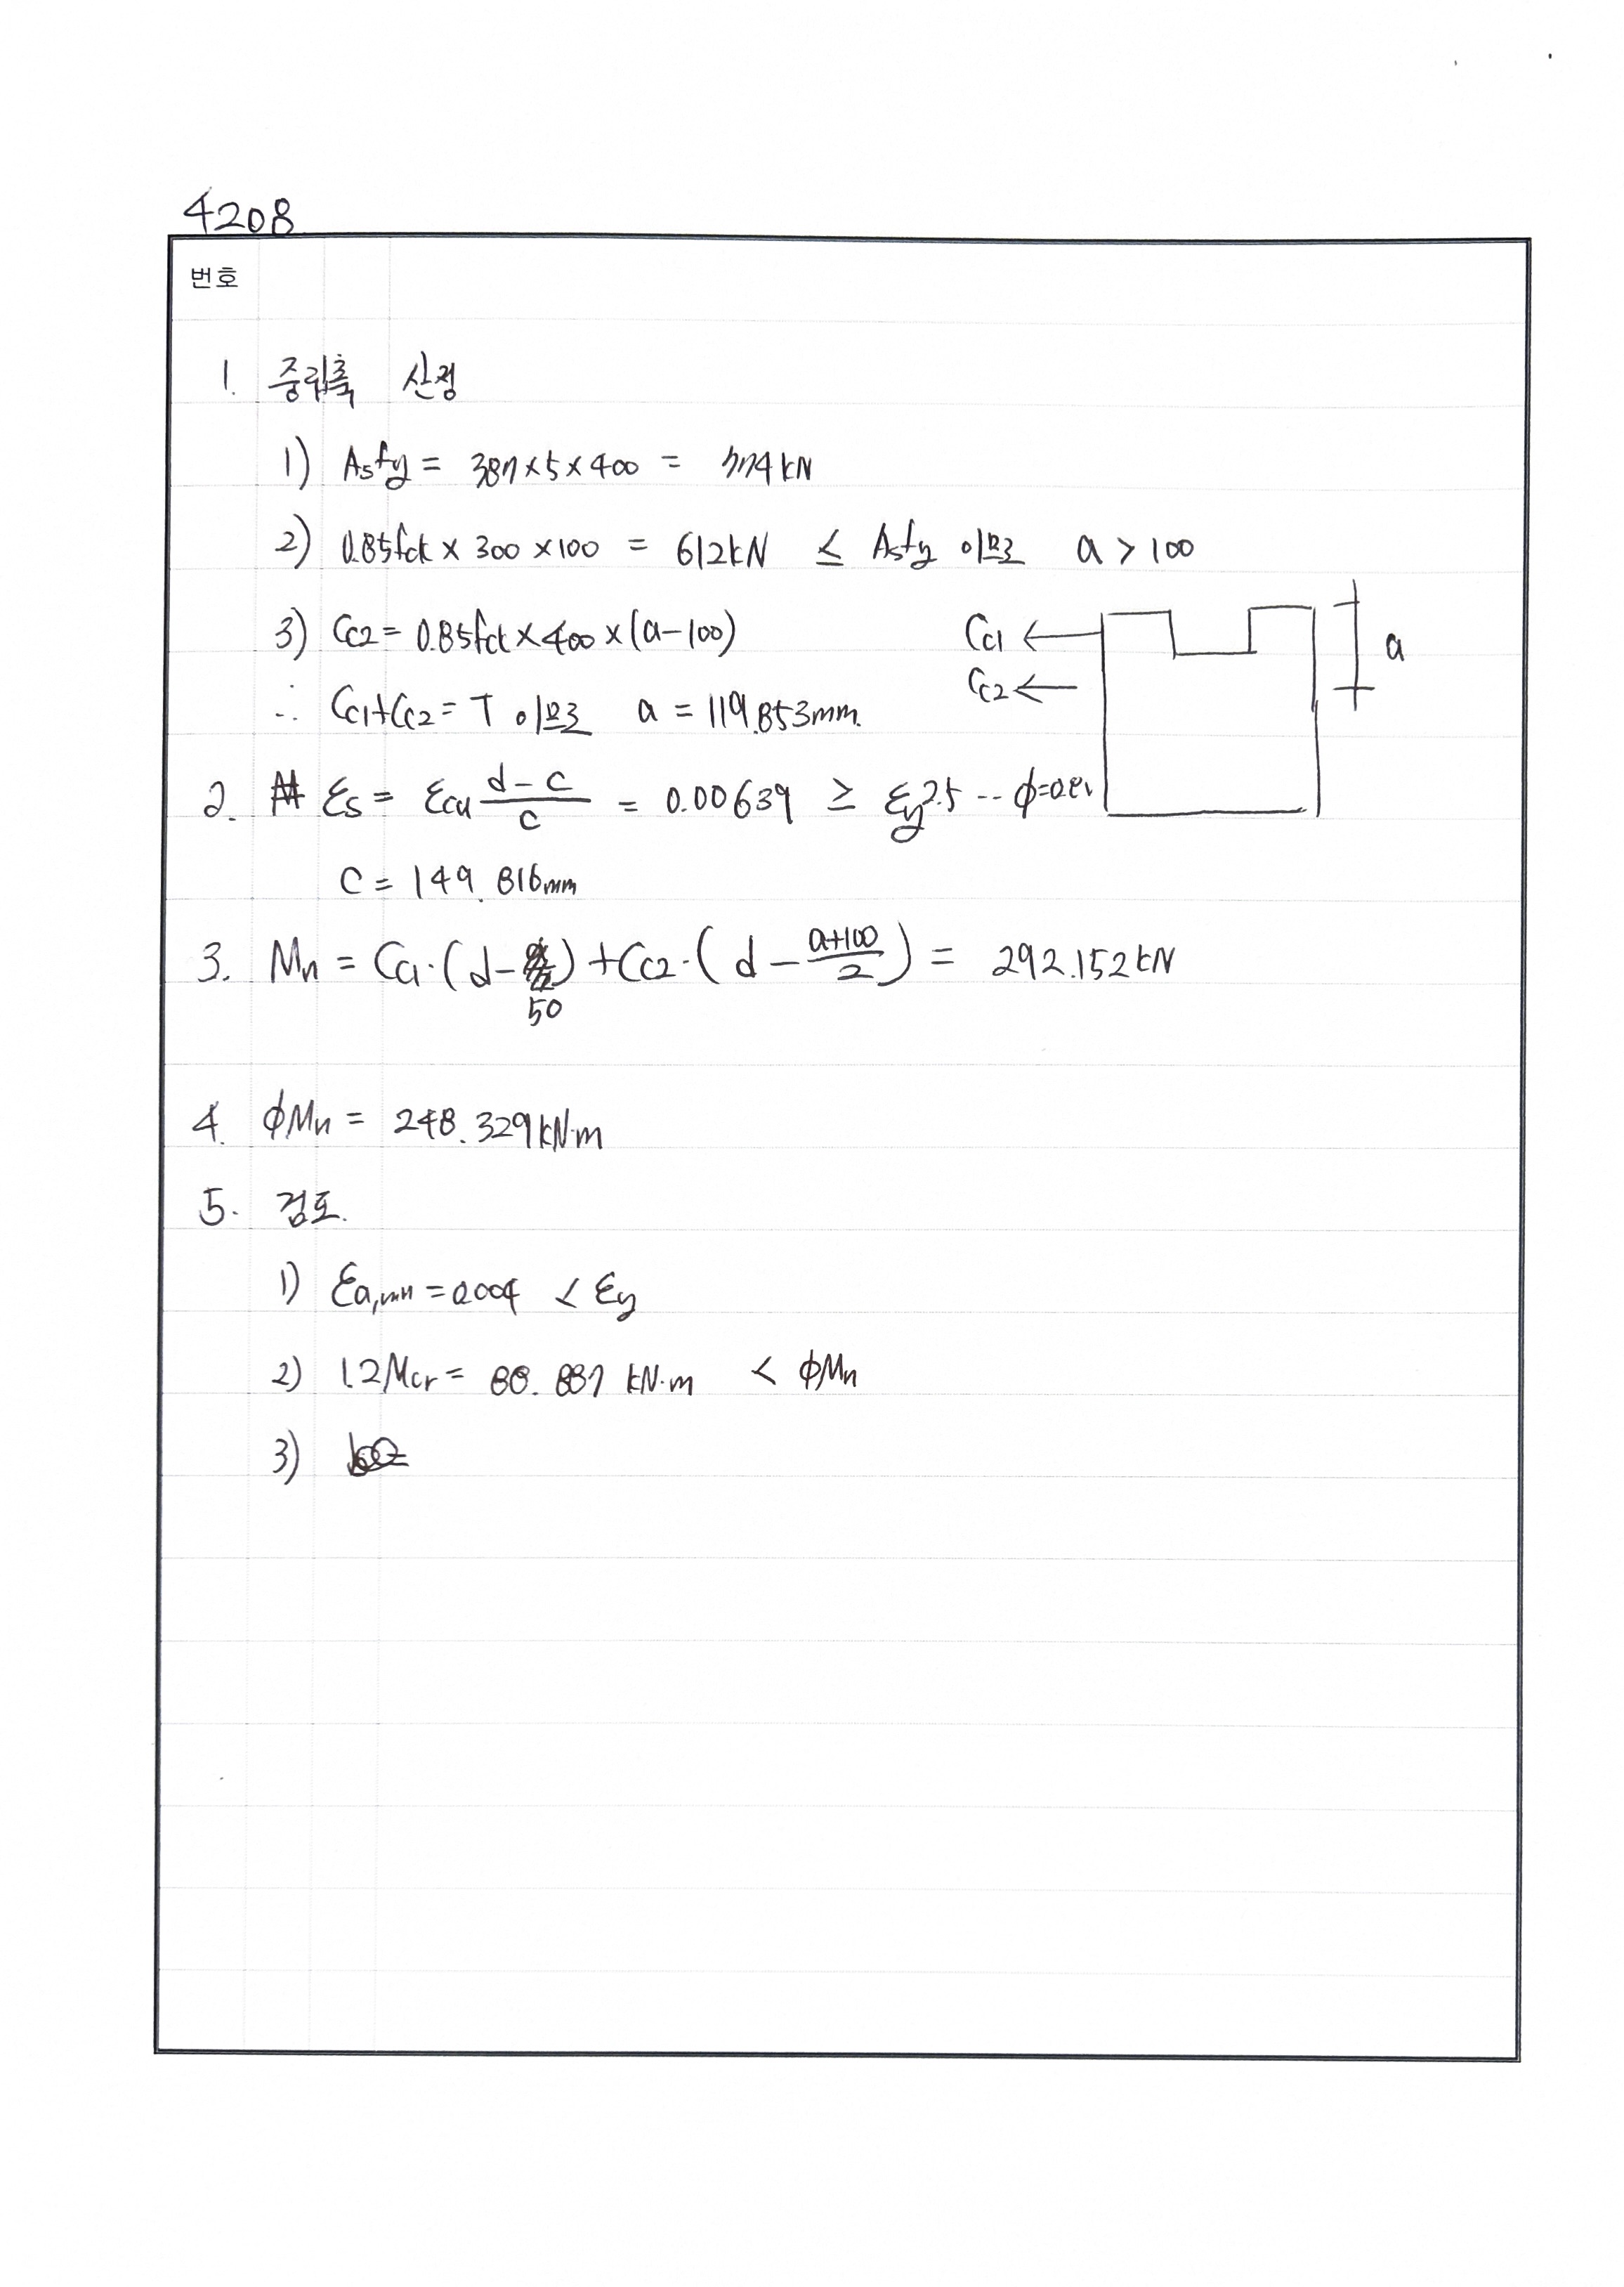 4208
번호
1. 중립축 산정
1) Asfy = 387×5×400 = 774kN
2) 0.85fck × 300 ×100 = 612kN ≤ Asfy 이므로 a > 100
3) Cc2 = 0.85fck×400×(a-100)
Cc1 ←
Cc2 ←
a
∴ Cc1+Cc2 = T 이므로 a = 119.853mm.
2. εs = εcu (d-c)/c = 0.00639 ≥ εy2.5 --
C = 149.816mm
3. Mn = Cc1·(d-50)+Cc2·(d - (a+100)/2) = 292.152kN
4. ϕMn = 248.329kN·m
5. 검토.
1) εa,min = 0.004 < εy
2) 1.2Mcr = 88.887 kN·m < ϕMn
3)